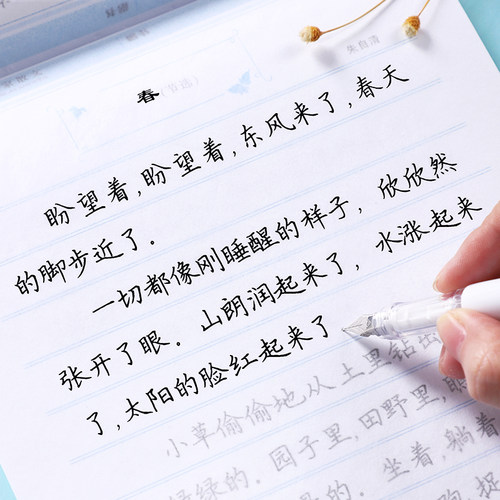 春
朱自清
盼望着,盼望着,东风来了,春天
的脚步近了。
一切都像刚睡醒的样子，欣欣然
张开了眼。山朗润起来了，水涨起来
了,太阳的脸红起来了
小草偷偷地从土里钻出
绿绿的。园子里,田野里,
的。坐着,躺着